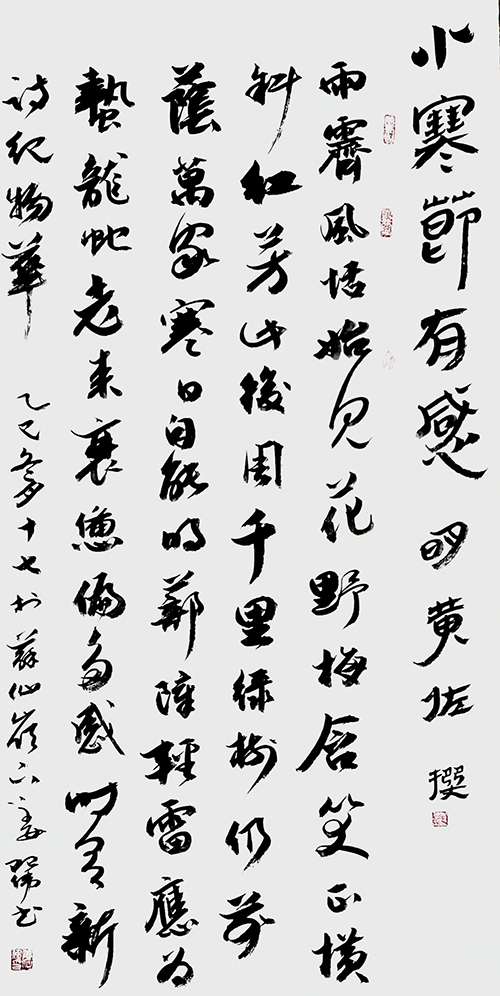 小寒節有感 明黃佐 撰
雨霽風恬始見花野梅含笑正橫
斜紅芳此後周千里綠樹仍前
蔭萬家寒日自能明蔀障輕雷應為
蟄龍蛇老來衰憊偏多感時有新
詩紀物華 乙巳冬月十七於蘇仙嶺下 書